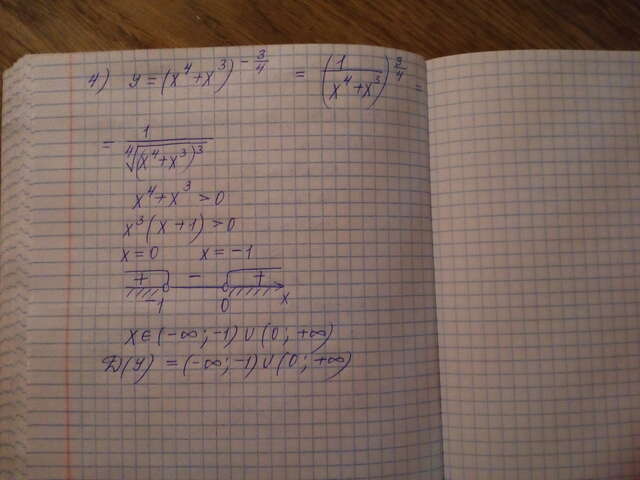 4) y = (x⁴+x³)^(-3/4) = (1/(x⁴+x³))^(3/4) =
= 1/⁴√((x⁴+x³)³)
x⁴+x³>0
x³(x+1)>0
x=0 x=-1
+ - +
-1 0 x
x∈(-∞;-1)∪(0;+∞)
D(y) = (-∞;-1)∪(0;+∞)